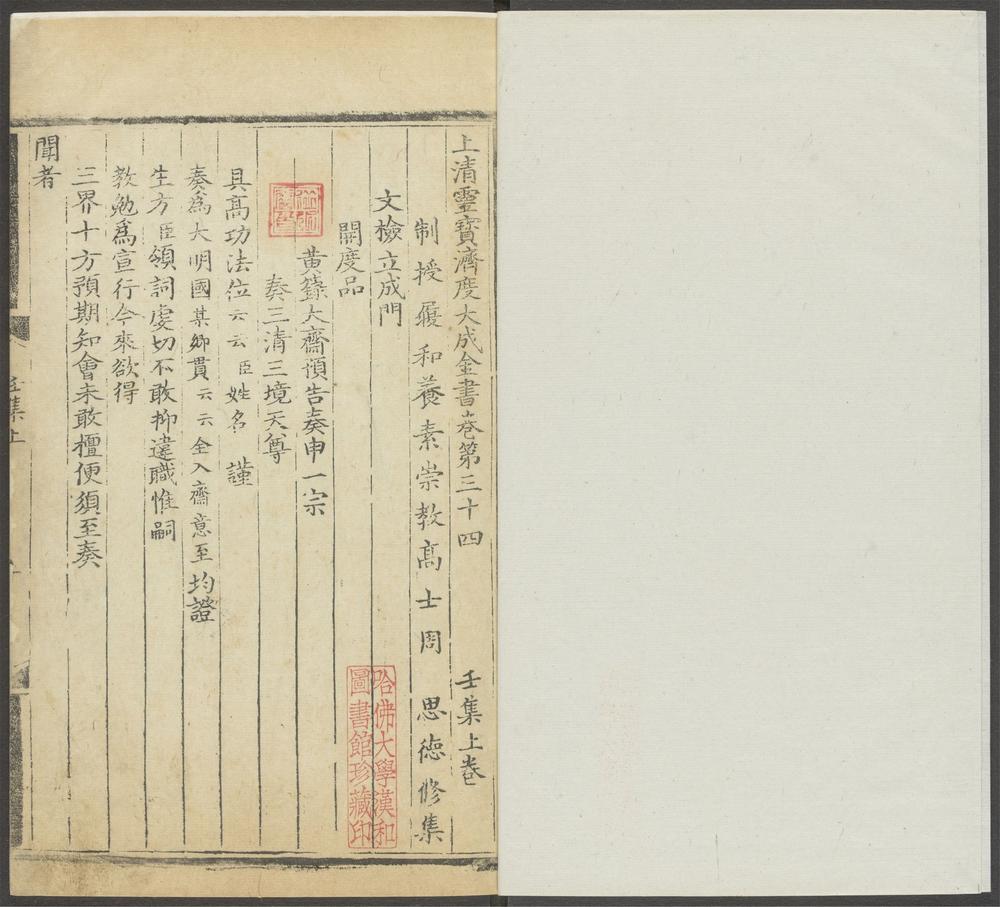 上清靈寶濟度大成金書卷第三十四　壬集上卷
制授履和養素崇教高士周　思德修集
文檢立成門
開度品
黃籙大齋預告奏申一宗
奏三清三境天尊
具高功法位云云臣姓名　謹
奏為大明國某鄉貫云云全入齋意至均證
生方臣領詞虔切不敢抑違職惟嗣
教勉為宣行今來欲得
三界十方預期知會未敢擅便須至奏
聞者
哈佛大學漢和
圖書館珍藏印
壬集上